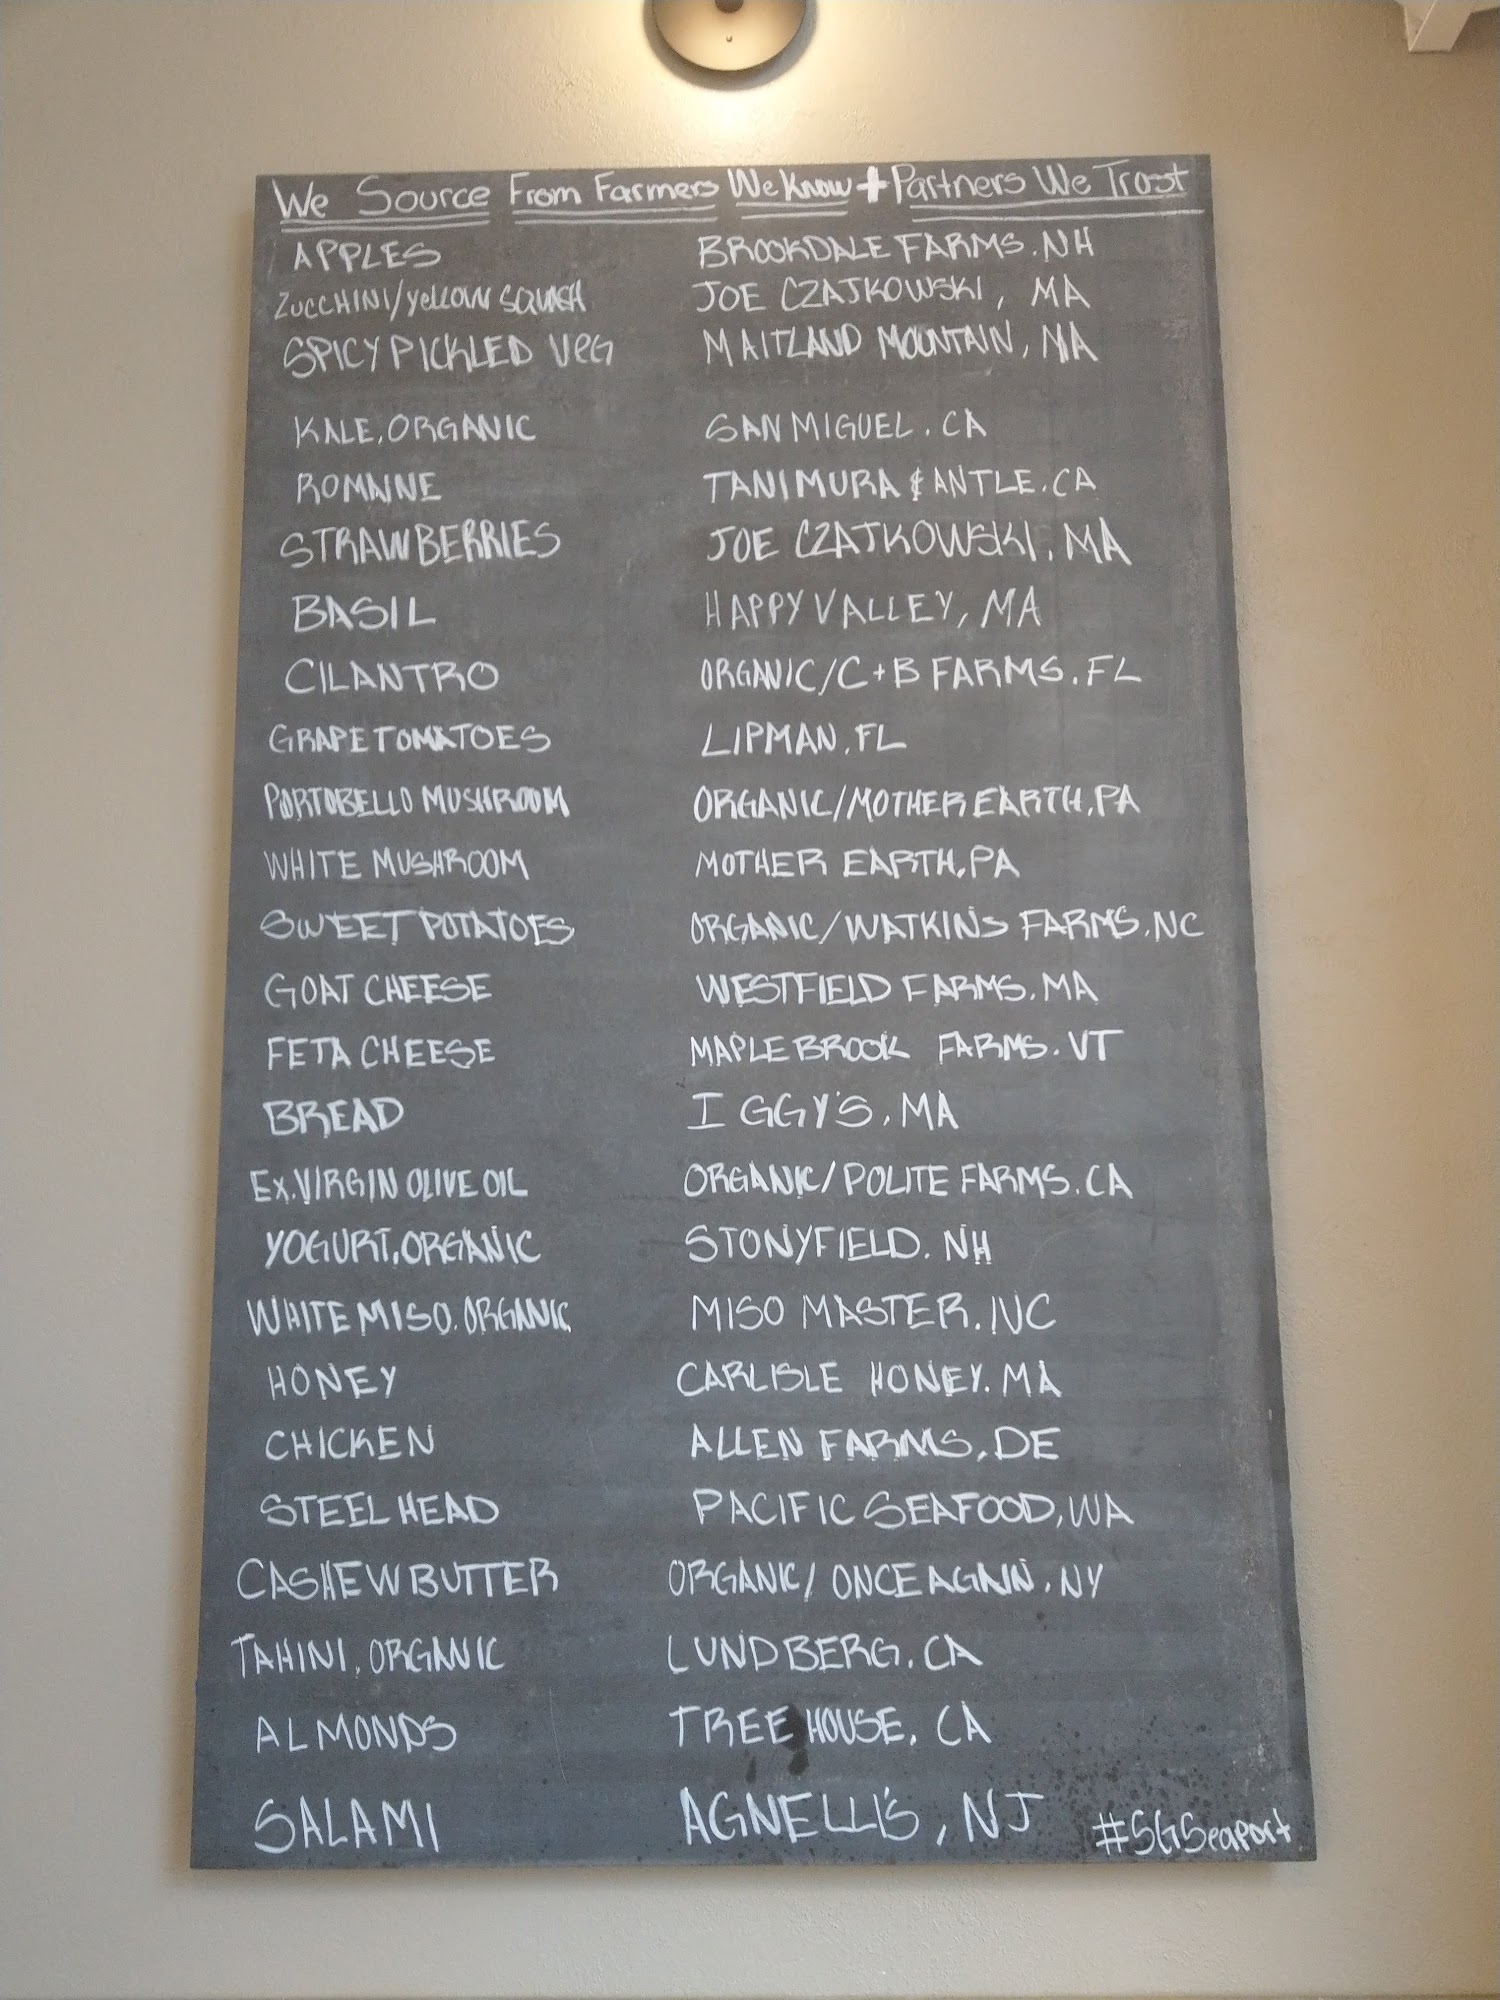 We Source From Farmers We Know + Partners We Trust
APPLES BROOKDALE FARMS. NH
ZUCCHINI/YELLOW SQUASH JOE CZAJKOWSKI, MA
SPICY PICKLED VEG MAITLAND MOUNTAIN, MA
KALE, ORGANIC SAN MIGUEL. CA
ROMAINE TANIMURA & ANTLE. CA
STRAWBERRIES JOE CZAJKOWSKI. MA
BASIL HAPPY VALLEY, MA
CILANTRO ORGANIC/C+B FARMS. FL
GRAPE TOMATOES LIPMAN, FL
PORTOBELLO MUSHROOM ORGANIC/MOTHER EARTH, PA
WHITE MUSHROOM MOTHER EARTH, PA
SWEET POTATOES ORGANIC/WATKINS FARMS. NC
GOAT CHEESE WESTFIELD FARMS. MA
FETA CHEESE MAPLEBROOK FARMS. VT
BREAD IGGY'S, MA
EX.VIRGIN OLIVE OIL ORGANIC/POLITE FARMS. CA
YOGURT, ORGANIC STONYFIELD. NH
WHITE MISO. ORGANIC MISO MASTER. NC
HONEY CARLISLE HONEY. MA
CHICKEN ALLEN FARMS, DE
STEELHEAD PACIFIC SEAFOOD, WA
CASHEW BUTTER ORGANIC/ ONCE AGAIN. NY
TAHINI, ORGANIC LUNDBERG. CA
ALMONDS TREE HOUSE. CA
SALAMI AGNELLI'S, NJ #SGSeaport